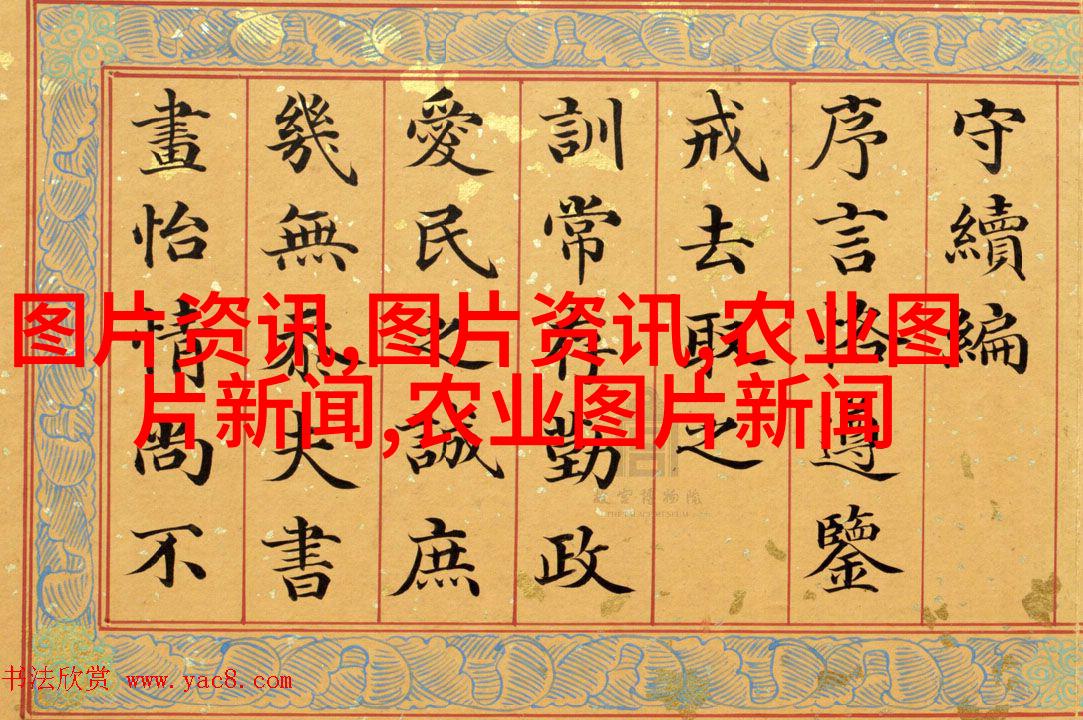 守續編
序言恪遵鑒
戒去取之
訓常存勤政
愛民之誠庶
幾無忝夫書
畫怡情尚不
图片资讯,图片资讯,农业图
片新闻,农业图片新闻
故宫博物院
THE PALACE MUSEUM
书法欣赏 www.yac8.com